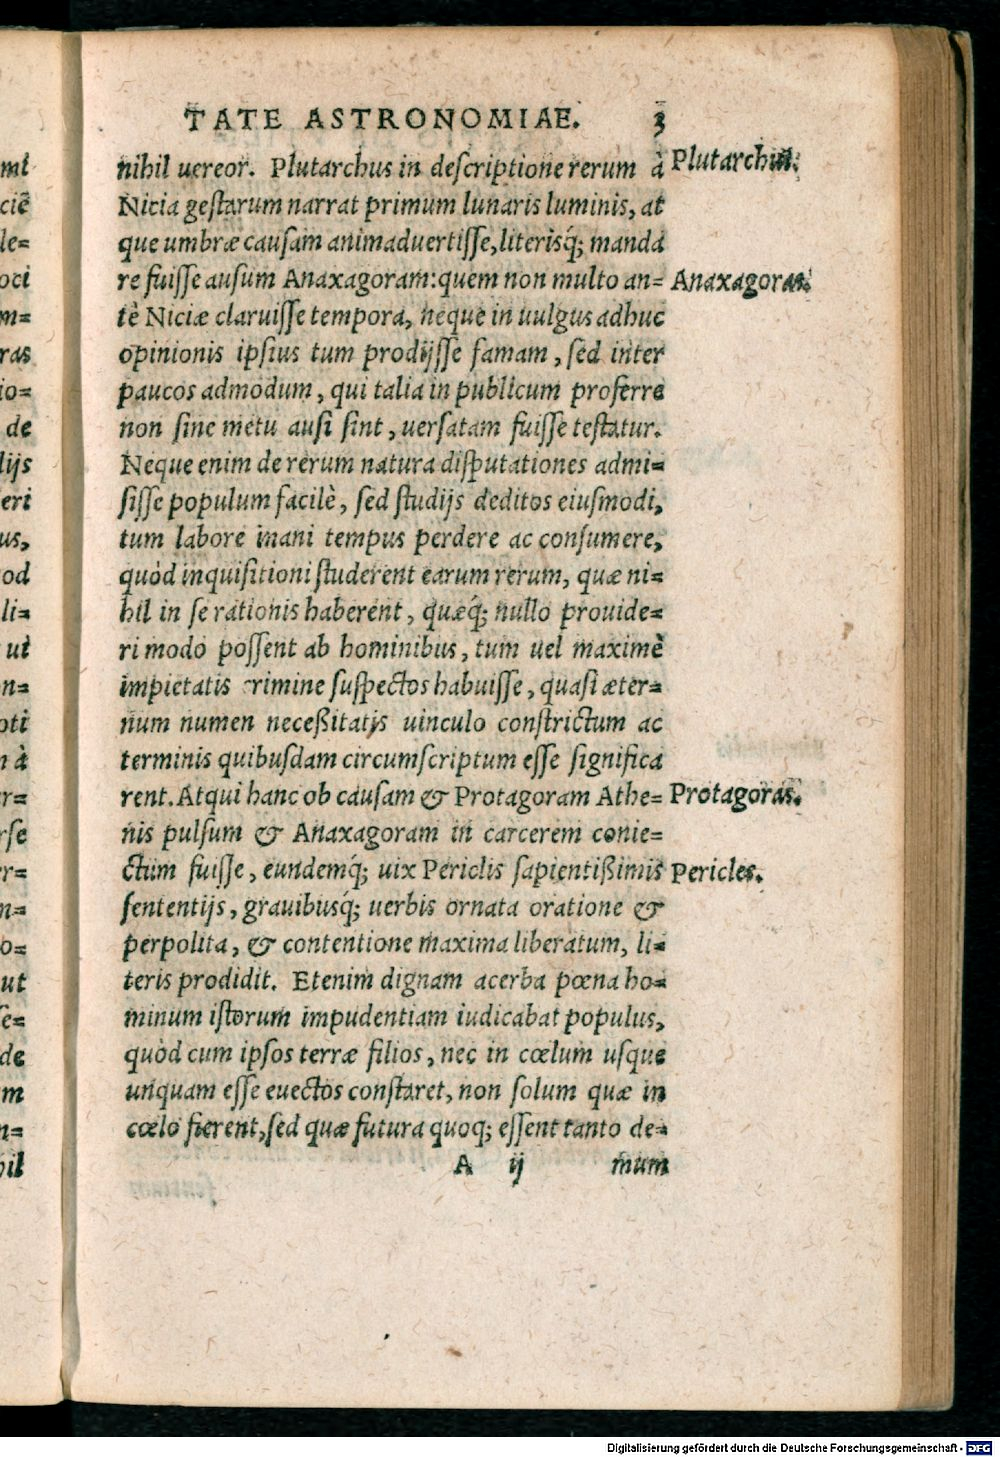 TATE ASTRONOMIAE. 3
nihil uereor. Plutarchus in descriptione rerum à
Plutarchus.
Nicia gestarum narrat primum lunaris luminis, at
que umbræ causam animaduertisse, literisq́; manda
re fuisse ausum Anaxagoram: quem non multo an=
Anaxagoras.
tè Niciæ claruisse tempora, neque in uulgus adhuc
opinionis ipsius tum prodijsse famam, sed inter
paucos admodum, qui talia in publicum proferre
non sine metu ausi sint, uersatam fuisse testatur.
Neque enim de rerum natura disputationes admi=
sisse populum facilè, sed studijs deditos eiusmodi,
tum labore inani tempus perdere ac consumere,
quòd inquisitioni studerent earum rerum, quæ ni=
hil in se rationis haberent, quæq́; nullo prouide=
ri modo possent ab hominibus, tum uel maximè
impietatis crimine suspectos habuisse, quasi æter=
num numen neceßitatis uinculo constrictum ac
terminis quibusdam circumscriptum esse significa
rent. Atqui hanc ob causam & Protagoram Athe=
Protagoras.
nis pulsum & Anaxagoram in carcerem conie=
ctum fuisse, eundemq́; uix Periclis sapientißimis
Pericles.
sententijs, grauibusq́; uerbis ornata oratione &
perpolita, & contentione maxima liberatum, li=
teris prodidit. Etenim dignam acerba pœna ho=
minum istorum impudentiam iudicabat populus,
quòd cum ipsos terræ filios, nec in cœlum usque
unquam esse euectos constaret, non solum quæ in
cœlo fierent, sed quæ futura quoq; essent tanto de=
A ij mum
mi
ciē
le=
oci
m=
ras
io=
de
lijs
eri
us,
od
li=
ut
n=
oti
à
r=
rse
r=
n=
o=
ut
se=
de
m
n=
hil
Digitalisierung gefördert durch die Deutsche Forschungsgemeinschaft - DFG